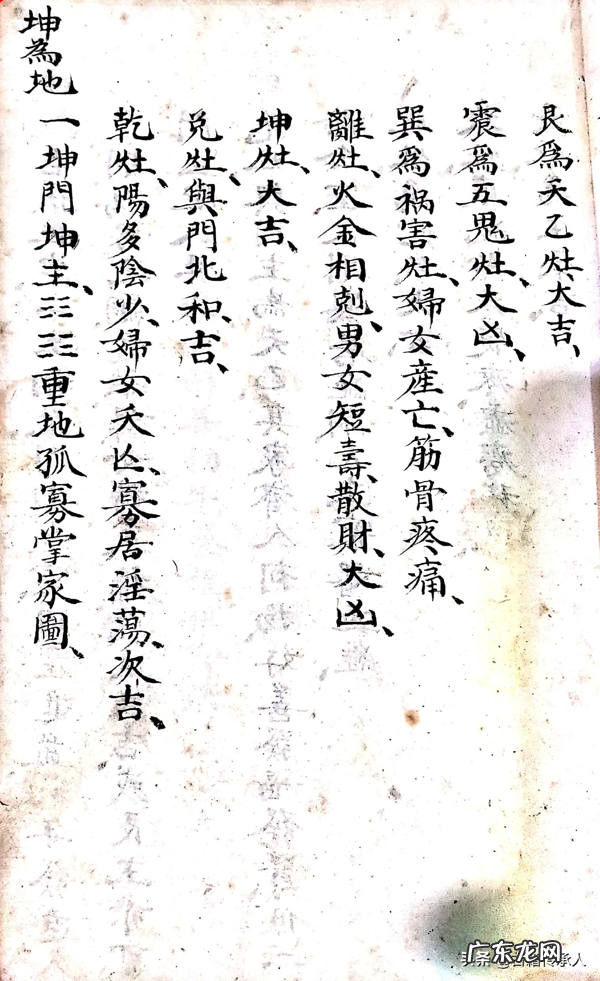 艮爲天乙灶、大吉、
震爲五鬼灶、大凶、
巽爲祸害灶、婦女産亡、筋骨疼痛、
離灶、火金相剋、男女短壽、散財、大凶、
坤灶、大吉、
兑灶、與門北和、吉、
乾灶、陽多陰少、婦女夭亡、寡居淫蕩、次吉、
坤為地
一坤門坤主、☷☷重地孤寡掌家圖、
广东龙网
头条
传承人